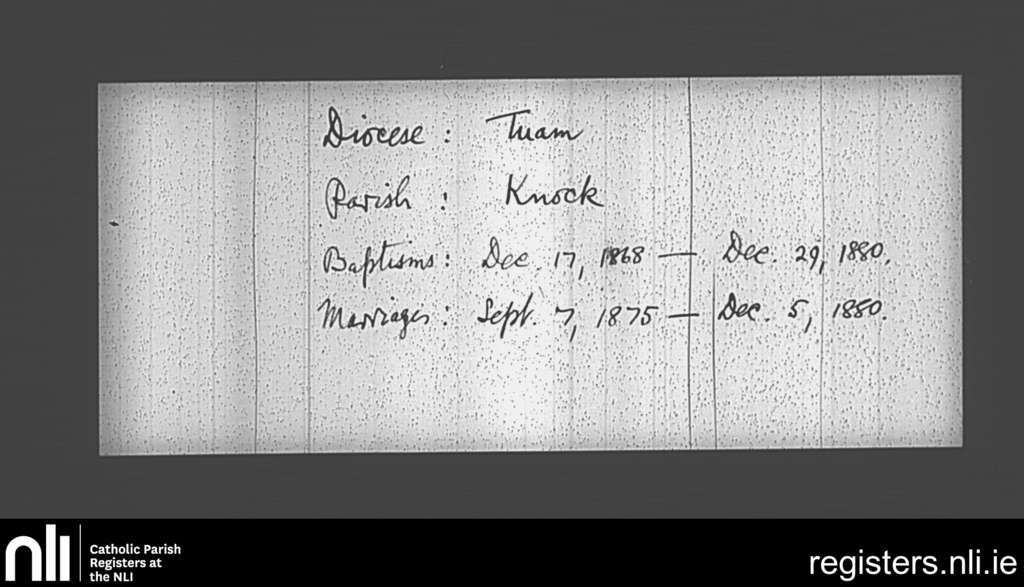 Diocese : Tuam
Parish : Knock
Baptisms : Dec. 17, 1868 — Dec. 29, 1880.
Marriages : Sept. 7, 1875 — Dec. 5, 1880.
nli
Catholic Parish
Registers at
the NLI
registers.nli.ie